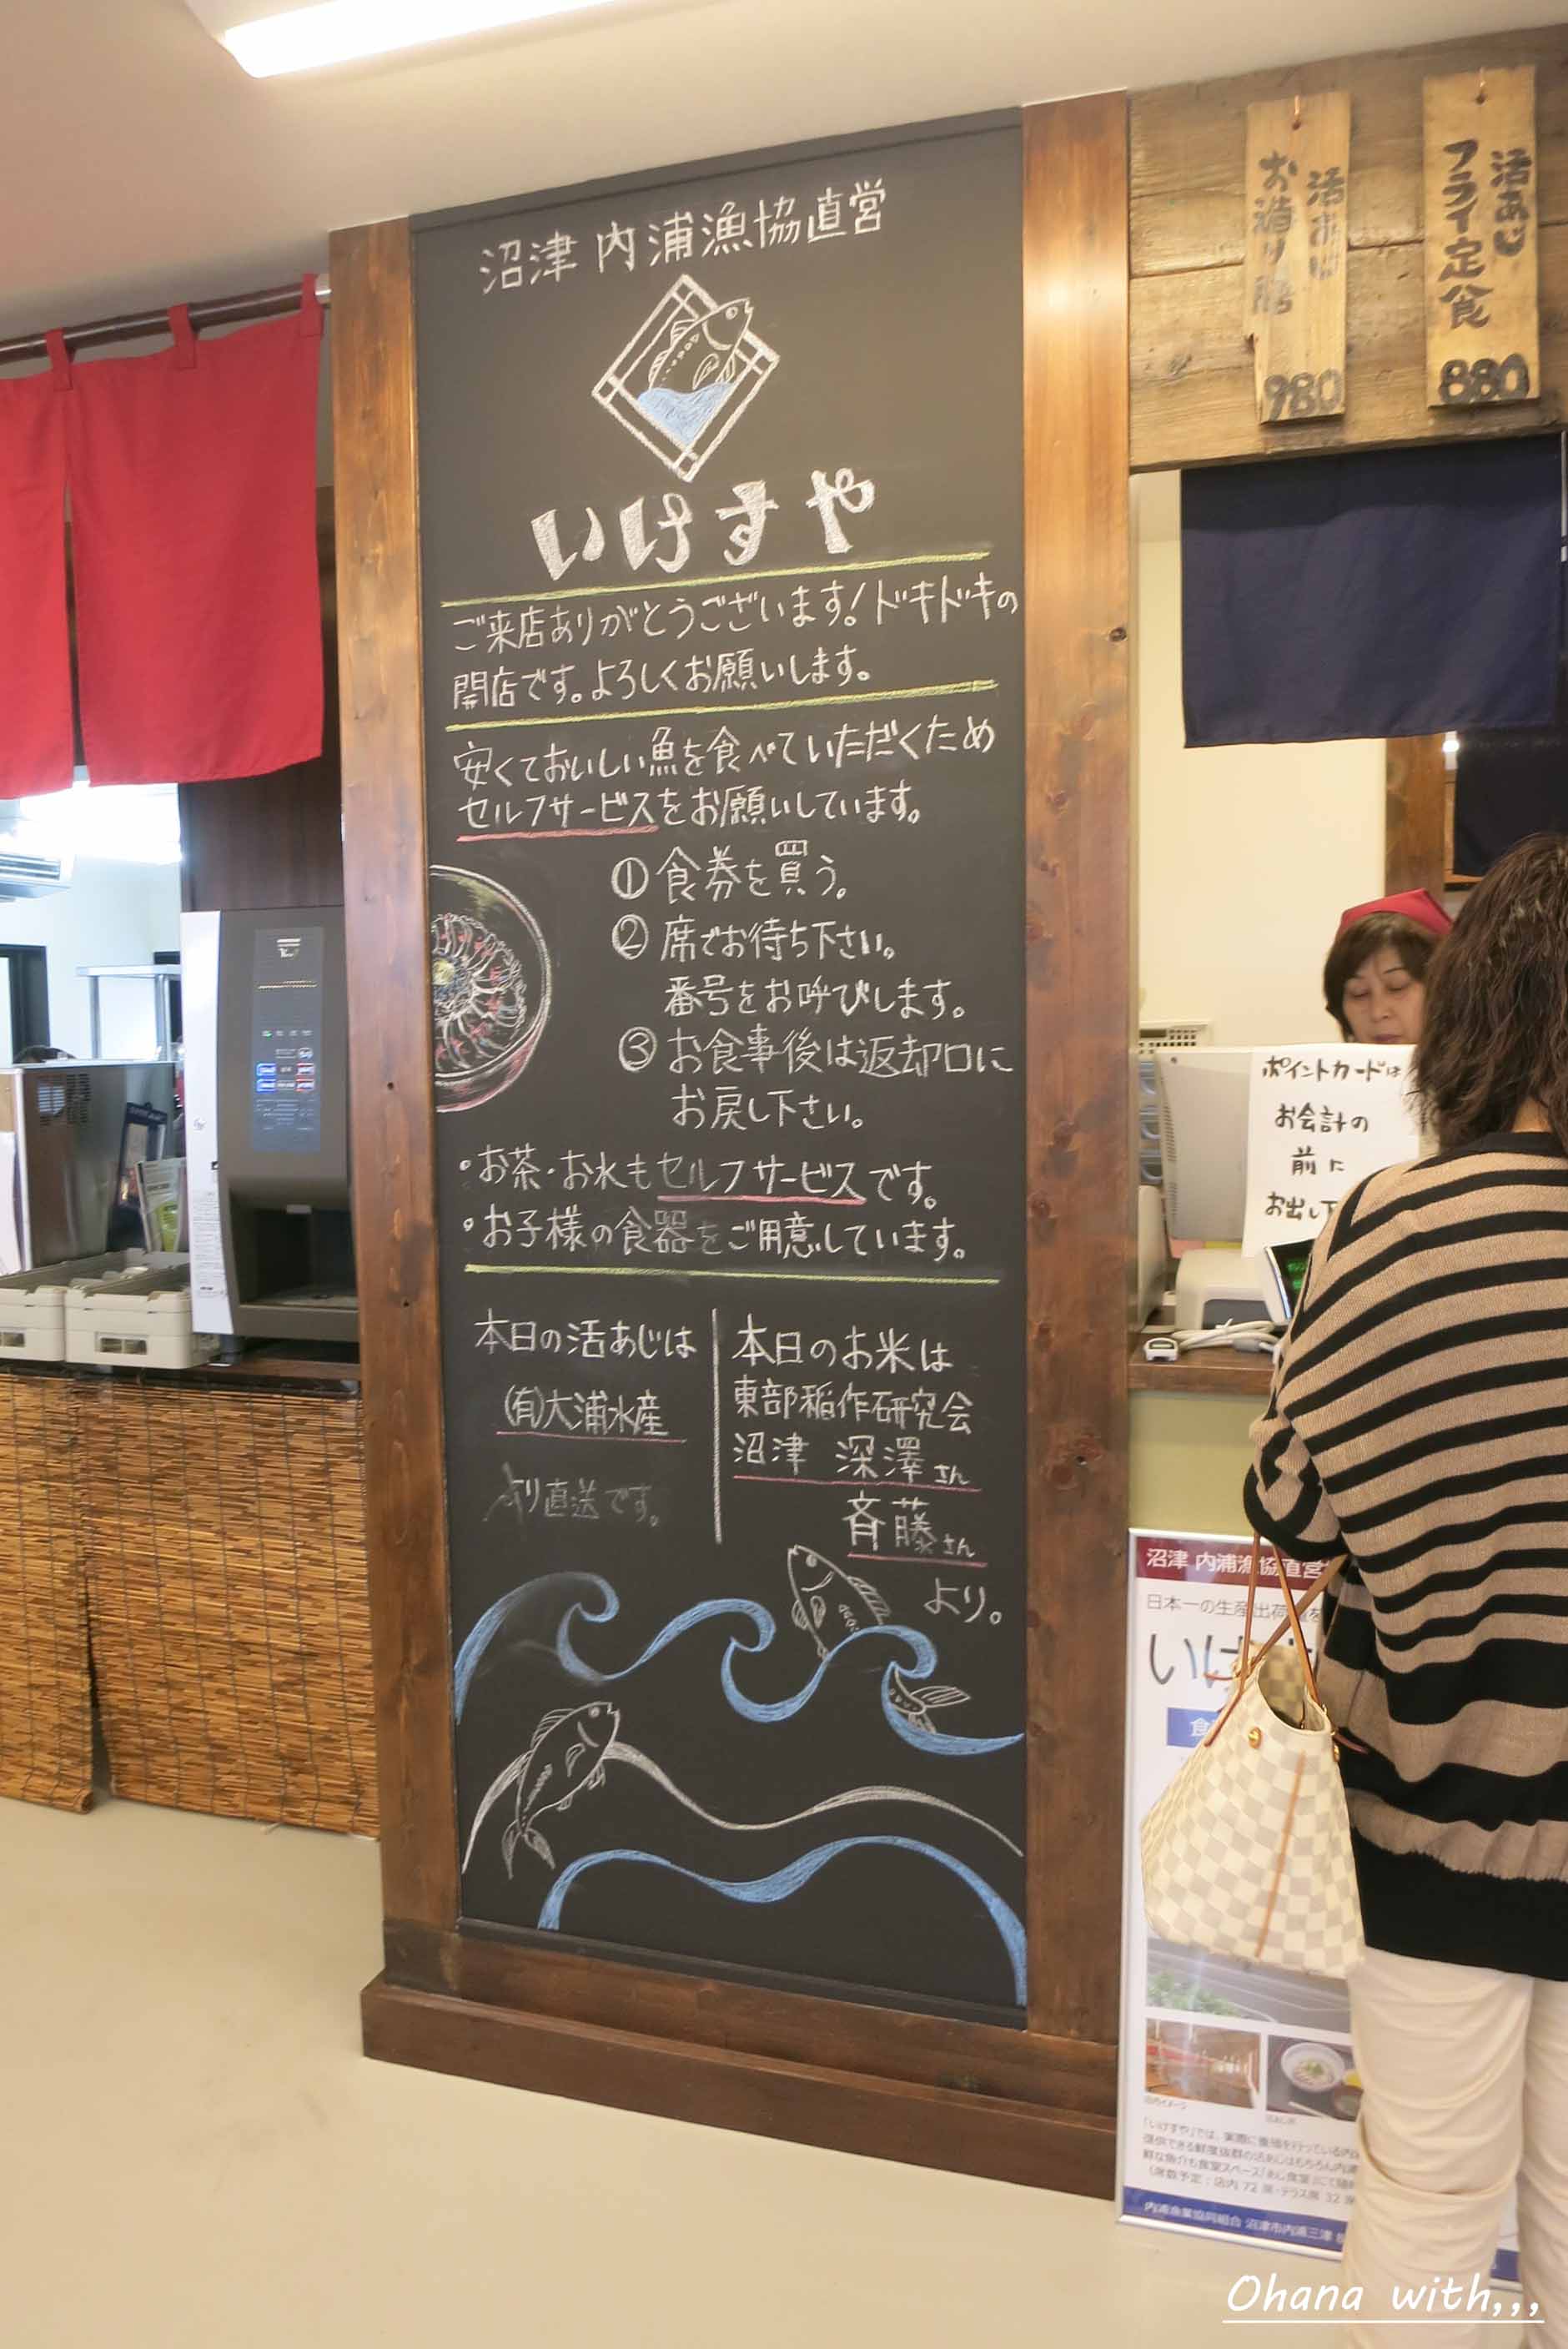 沼津 内浦漁協直営
いけすや
ご来店ありがとうございます!ドキドキの
開店です。よろしくお願いします。
安くておいしい魚を食べていただくため
セルフサービスをお願いしています。
① 食券を買う。
② 席でお待ち下さい。
番号をお呼びします。
③ お食事後は返却口に
お戻し下さい。
・お茶・お水もセルフサービスです。
・お子様の食器をご用意しています。
本日の活あじは
(有)大浦水産
より直送です。
本日のお米は
東部稲作研究会
沼津 深澤さん
斉藤さん
より。
活あじ
フライ定食
880
活あじ
お造り膳
980
ポイントカードは
お会計の
前に
お出し下
沼津 内浦漁協直営
日本一の生産出荷量を
いけす
内浦漁業協同組合 沼津市内浦三津
Ohana with,,,